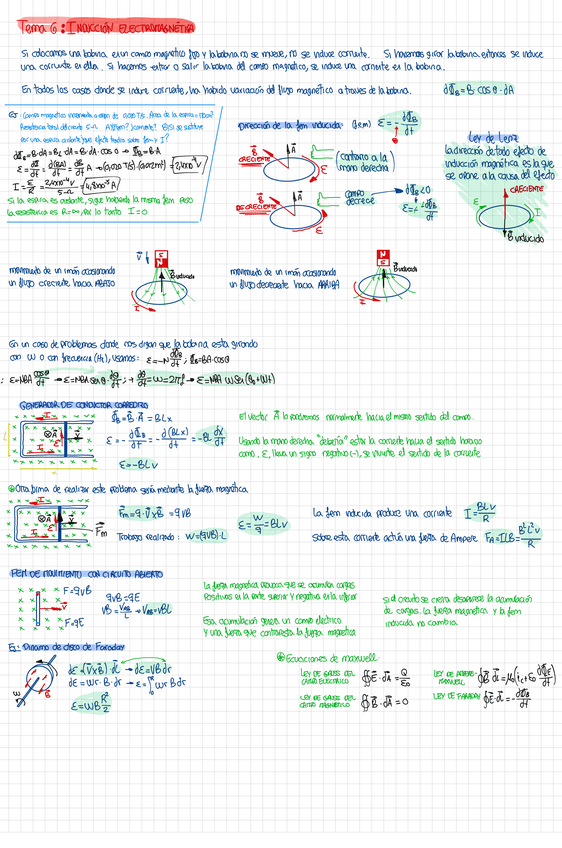 Tema 6: INDUCCIÓN ELECTROMAGNÉTICA
Si colocamos una bobina en un campo magnético fijo y la bobina no se mueve, no se induce corriente. Si hacemos girar la bobina entonces se induce
una corriente en ella. Si hacemos entrar o salir la bobina del campo magnético, se induce una corriente en la bobina.
En todos los casos donde se induce corriente, ha habido variación del flujo magnético a traves de la bobina. dΦB = B cos θ · dA
Resistencia total del circuito 5 Ω
dΦB = B·dA = B⊥·dA = B·dA·cos 0 → ΦB = B·A
I = ε/R
Si la espira es aislante, sigue habiendo la misma fem pero
la resistencia es R=∞, por lo tanto I=0
Dirección de la fem inducida: (fem) ε = - dΦB/dt
B CRECIENTE
A
ε
(contrario a la
mano derecha)
B DECRECIENTE
A
ε
campo
decrece
dΦB<0
Ley de Lenz
La dirección de todo efecto de
inducción magnética es la que
se opone a la causa del efecto
CRECIENTE
ε
I
B INDUCIDO
movimiento de un imán ocasionando
un flujo creciente hacia ABAJO
V
S
N
B inducido
I
movimiento de un imán ocasionando
un flujo decreciente hacia ARRIBA
S
N
B inducido
I
En un caso de problemas donde nos digan que la bobina esta girando
con ω o con frecuencia (Hz), usamos: ε=-N dΦB/dt ; ΦB=BA·cosθ
GENERADOR DE CONDUCTOR CORREDIZO
ΦB = B·A = BLx
ε = - dΦB/dt = - d(BLx)/dt = -BL dx/dt
ε=-BLv
El vector A lo pondremos normalmente hacia el mismo sentido del campo.
Usando la mano derecha "debería" estar la corriente hacia el sentido horario
como ε, lleva un signo negativo (-), se invierte el sentido de la corriente
Otra forma de realizar este problema sería mediante la fuerza magnética
Fm = q·V×B = qVB
Trabajo realizado: W=(qVB)·L
ε = W/q = BLv
Fm
La fem inducida produce una corriente I = BLv/R
Sobre esta corriente actúa una fuerza de Ampere FA=ILB= B²L²v/R
FEM DE MOVIMIENTO CON CIRCUITO ABIERTO
F=qVB
F=qE
qVB=qE
La fuerza magnética provoca que se acumulen cargas
Positivas en la parte superior y negativa en la inferior
Esa acumulación genera un campo eléctrico
y una fuerza que contrarresta la fuerza magnética
Si el circuito se cierra desaparece la acumulación
de cargas. La fuerza magnética y la fem
inducida no cambia.
Ej: Dinamo de disco de Faraday
dE=(V×B)·dl → dE=VBdr
dE=ωr·B·dr → ε=∫ωrBdr
ε=ωB R²/2
ω
B
Ecuaciones de maxwell
LEY DE GAUSS DEL
CAMPO ELÉCTRICO ∯E·dA = Q/ε0
LEY DE AMPERE-
MAXWELL ∮B·dl=μ0(ic+ε0 dΦE/dt)
LEY DE GAUSS DEL
CAMPO MAGNÉTICO ∯B·dA=0
LEY DE FARADAY ∮E·dl=-dΦB/dt